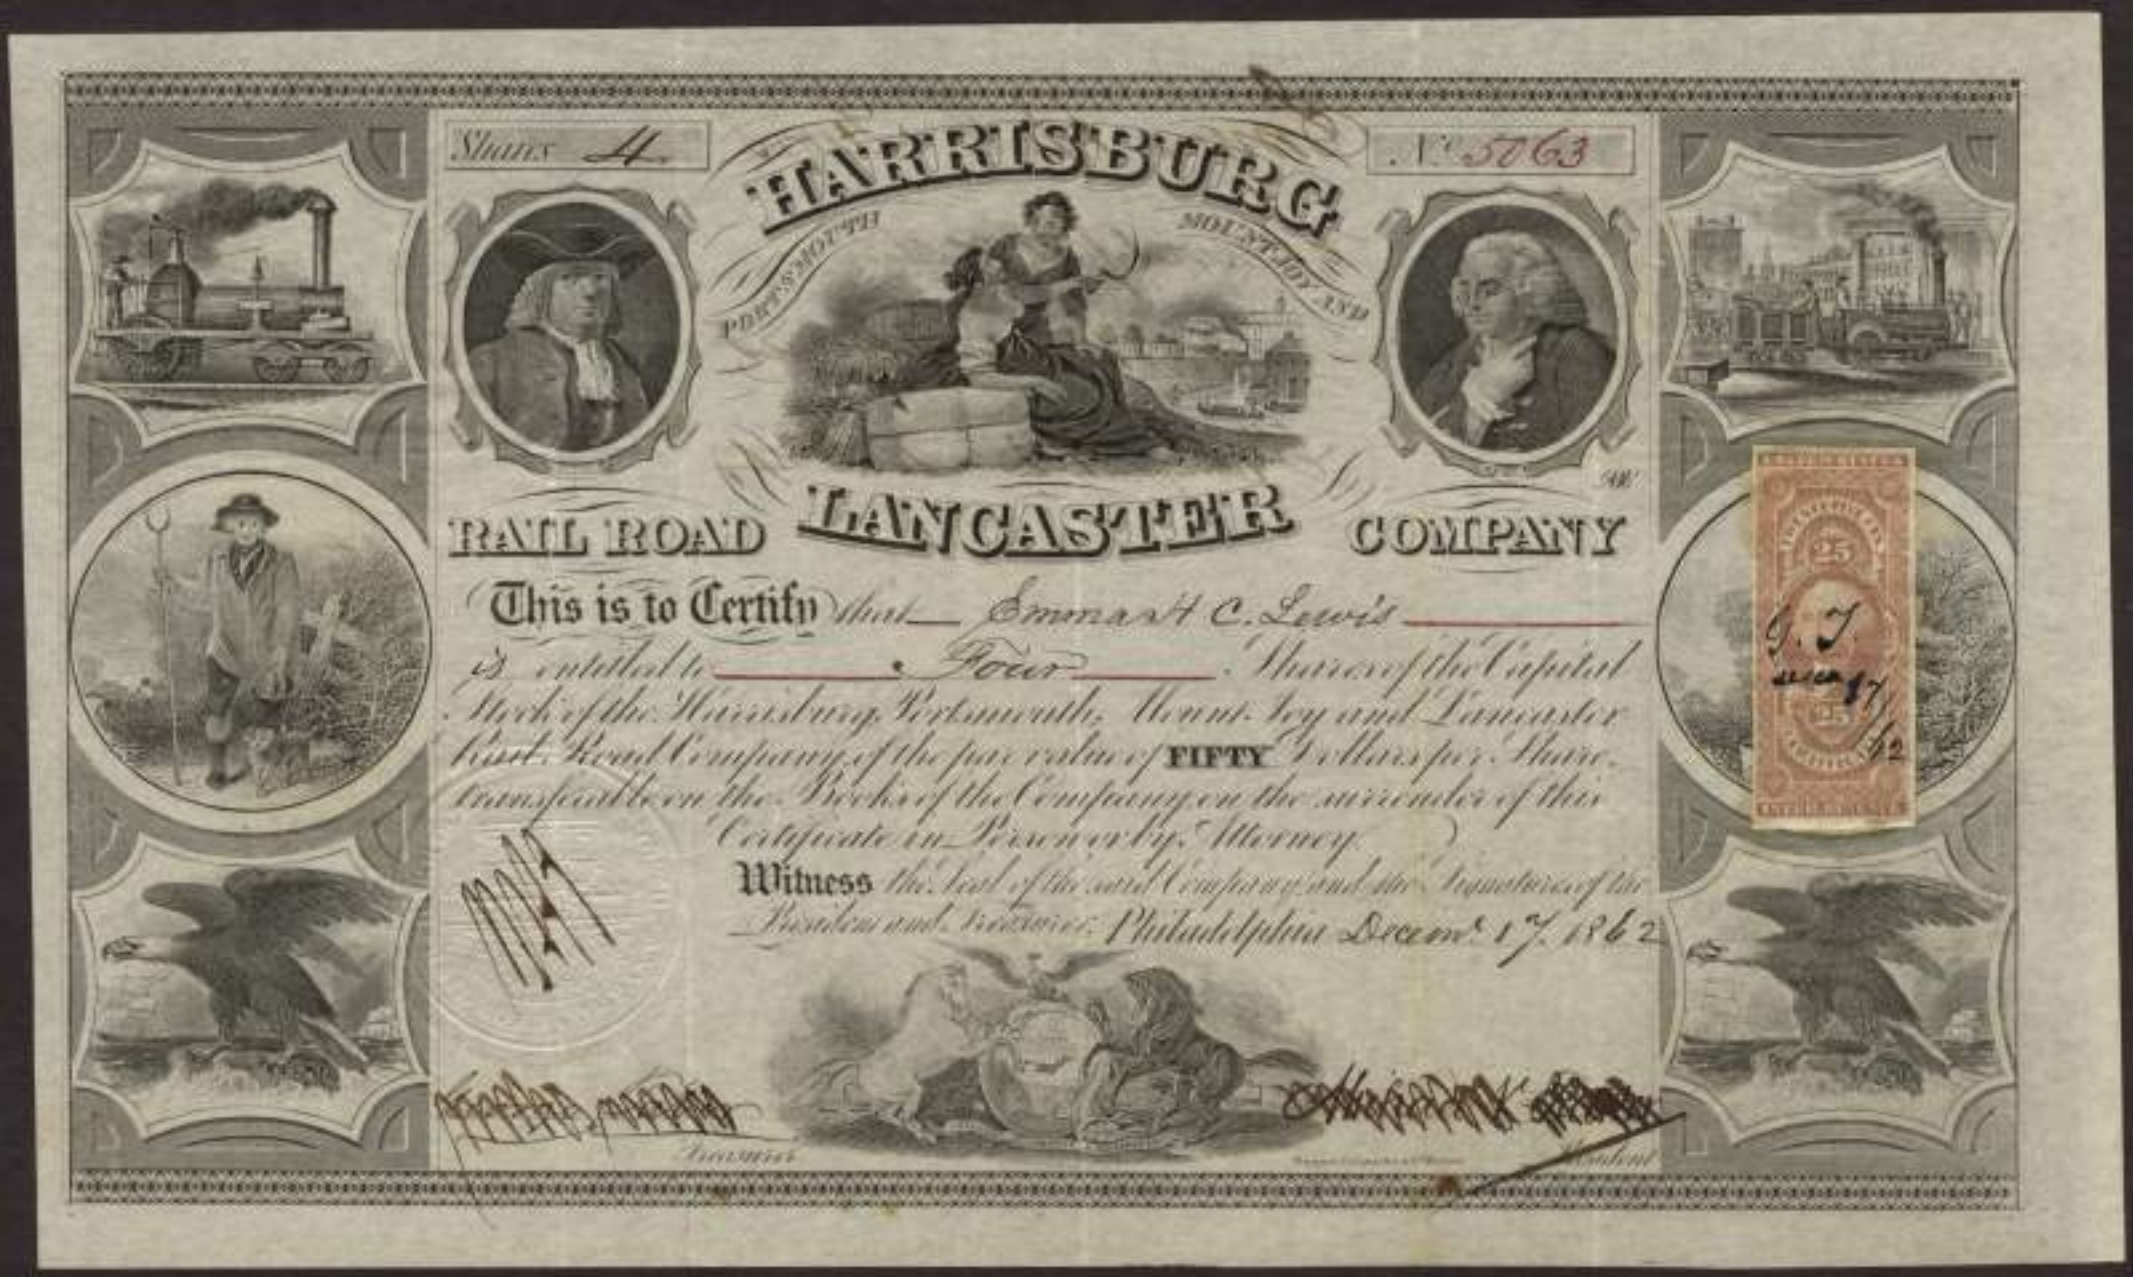 Shares 4
No 5063
HARRISBURG
PORTSMOUTH
MOUNT JOY AND
LANCASTER
RAIL ROAD COMPANY
This is to Certify that Emma H C. Lewis
is entitled to Four Shares of the Capital
Stock of the Harrisburg, Portsmouth, Mount Joy and Lancaster
Rail Road Company of the par value of FIFTY Dollars per Share.
transferable on the Books of the Company on the surrender of this
Certificate in Person or by Attorney.
Witness the Seal of the said Company and the Signatures of the
President and Treasurer. Philadelphia Decemr. 17. 1862
Treasurer
President
25
G. T.
17
25
62